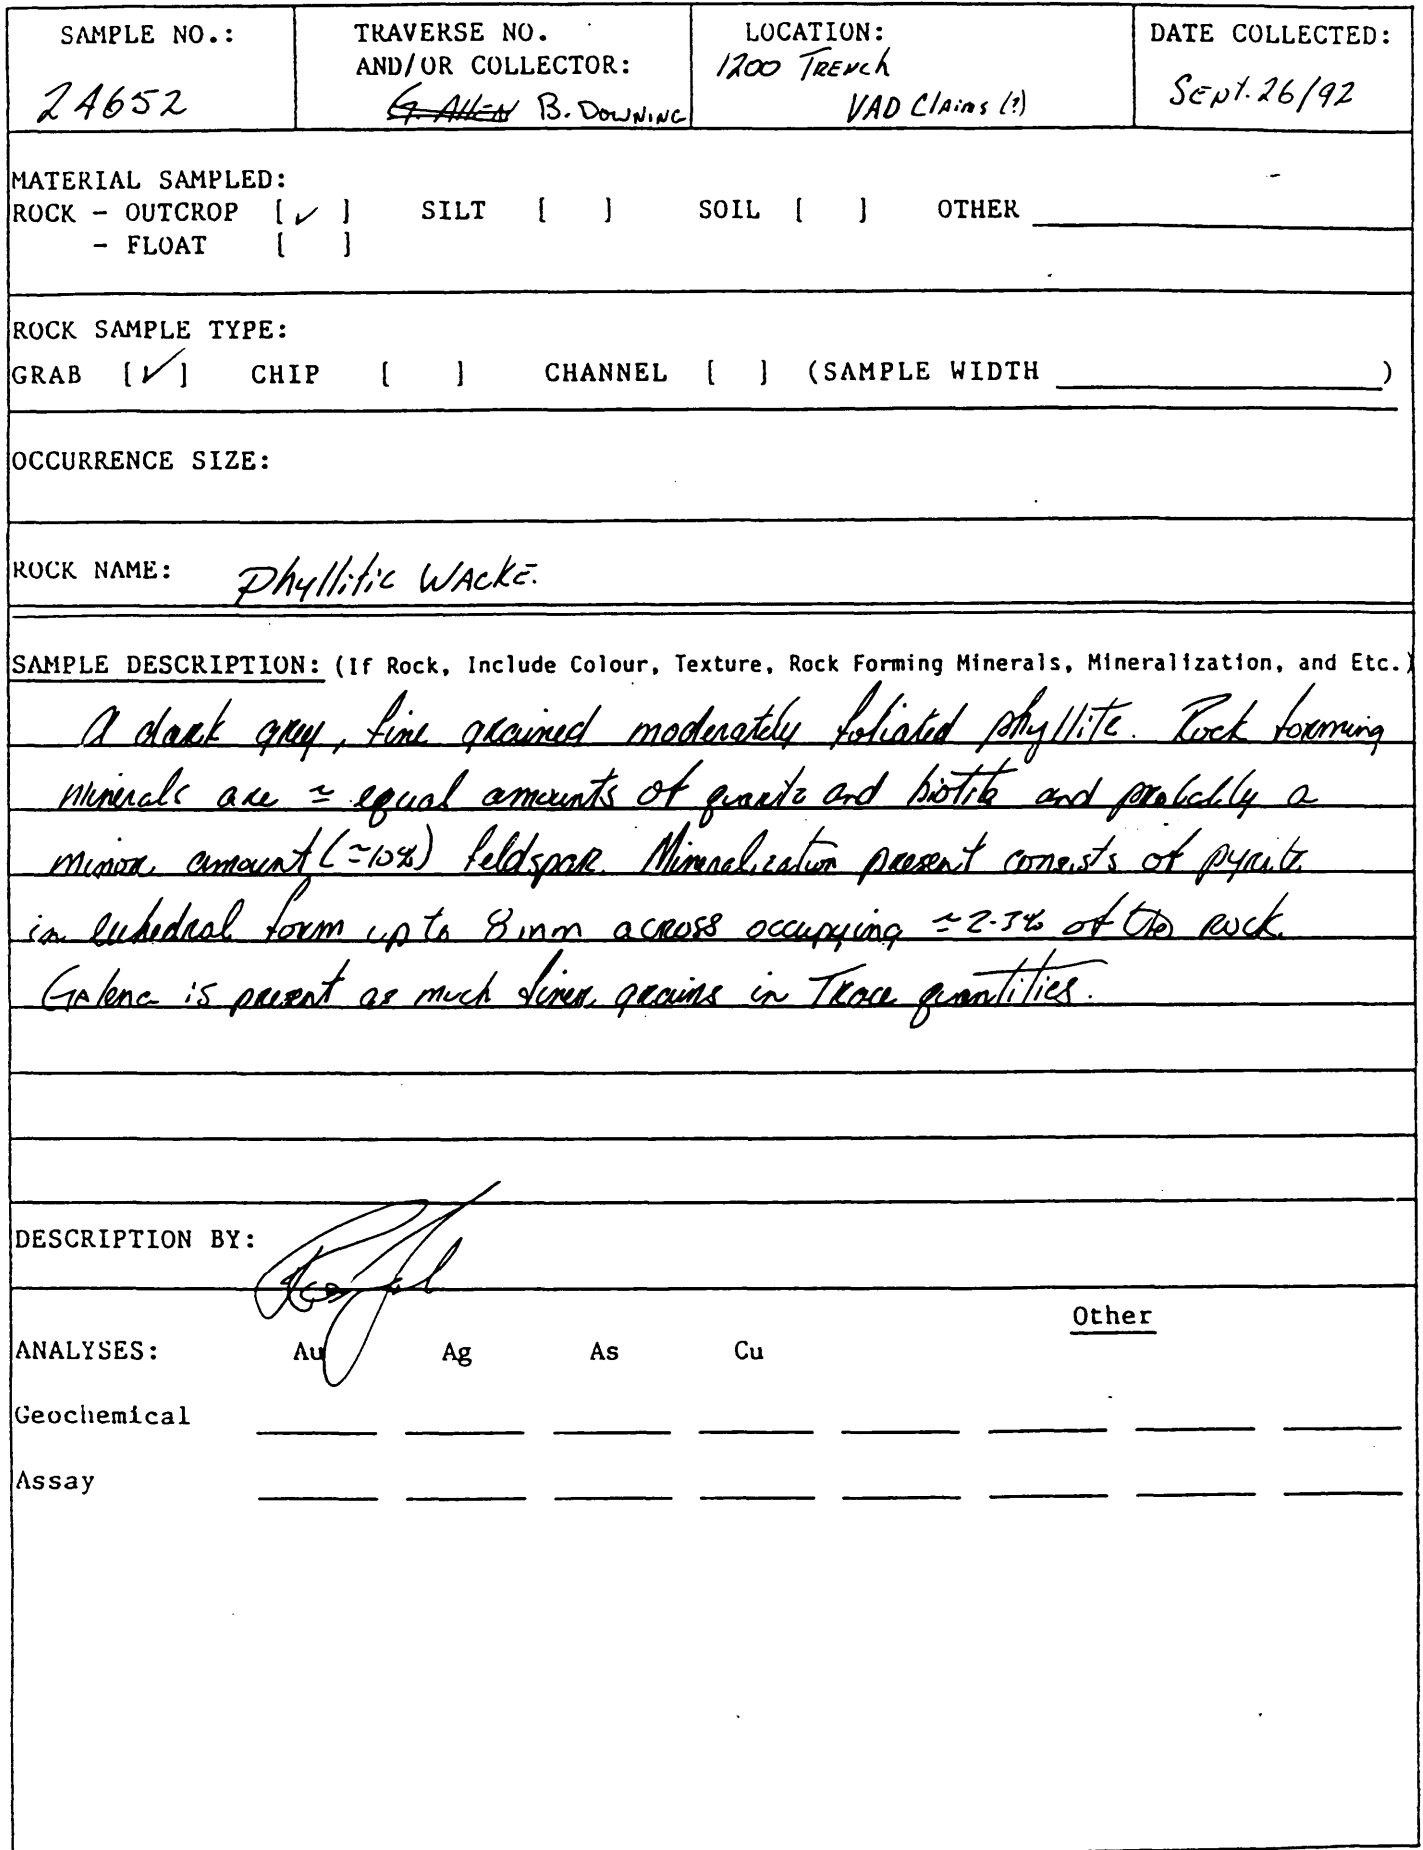 SAMPLE NO.: TRAVERSE NO. LOCATION: DATE COLLECTED:
AND/OR COLLECTOR: 1200 Trench
24652 G. Allen B. Downing VAD Claims (?) Sept. 26/92
MATERIAL SAMPLED:
ROCK - OUTCROP [✓] SILT [ ] SOIL [ ] OTHER
- FLOAT [ ]
ROCK SAMPLE TYPE:
GRAB [✓] CHIP [ ] CHANNEL [ ] (SAMPLE WIDTH )
OCCURRENCE SIZE:
ROCK NAME: Phyllitic Wacke.
SAMPLE DESCRIPTION: (If Rock, Include Colour, Texture, Rock Forming Minerals, Mineralization, and Etc.)
A dark grey, fine grained moderately foliated phyllite. Rock forming
minerals are ≃ equal amounts of quartz and biotite and probably a
minor amount (≃10%) feldspar. Mineralization present consists of pyrite
in euhedral form up to 8 mm across occupying ≃2-3% of the rock.
Galena is present as much finer grains in Trace quantities.
DESCRIPTION BY:
Other
ANALYSES: Au Ag As Cu
Geochemical
Assay